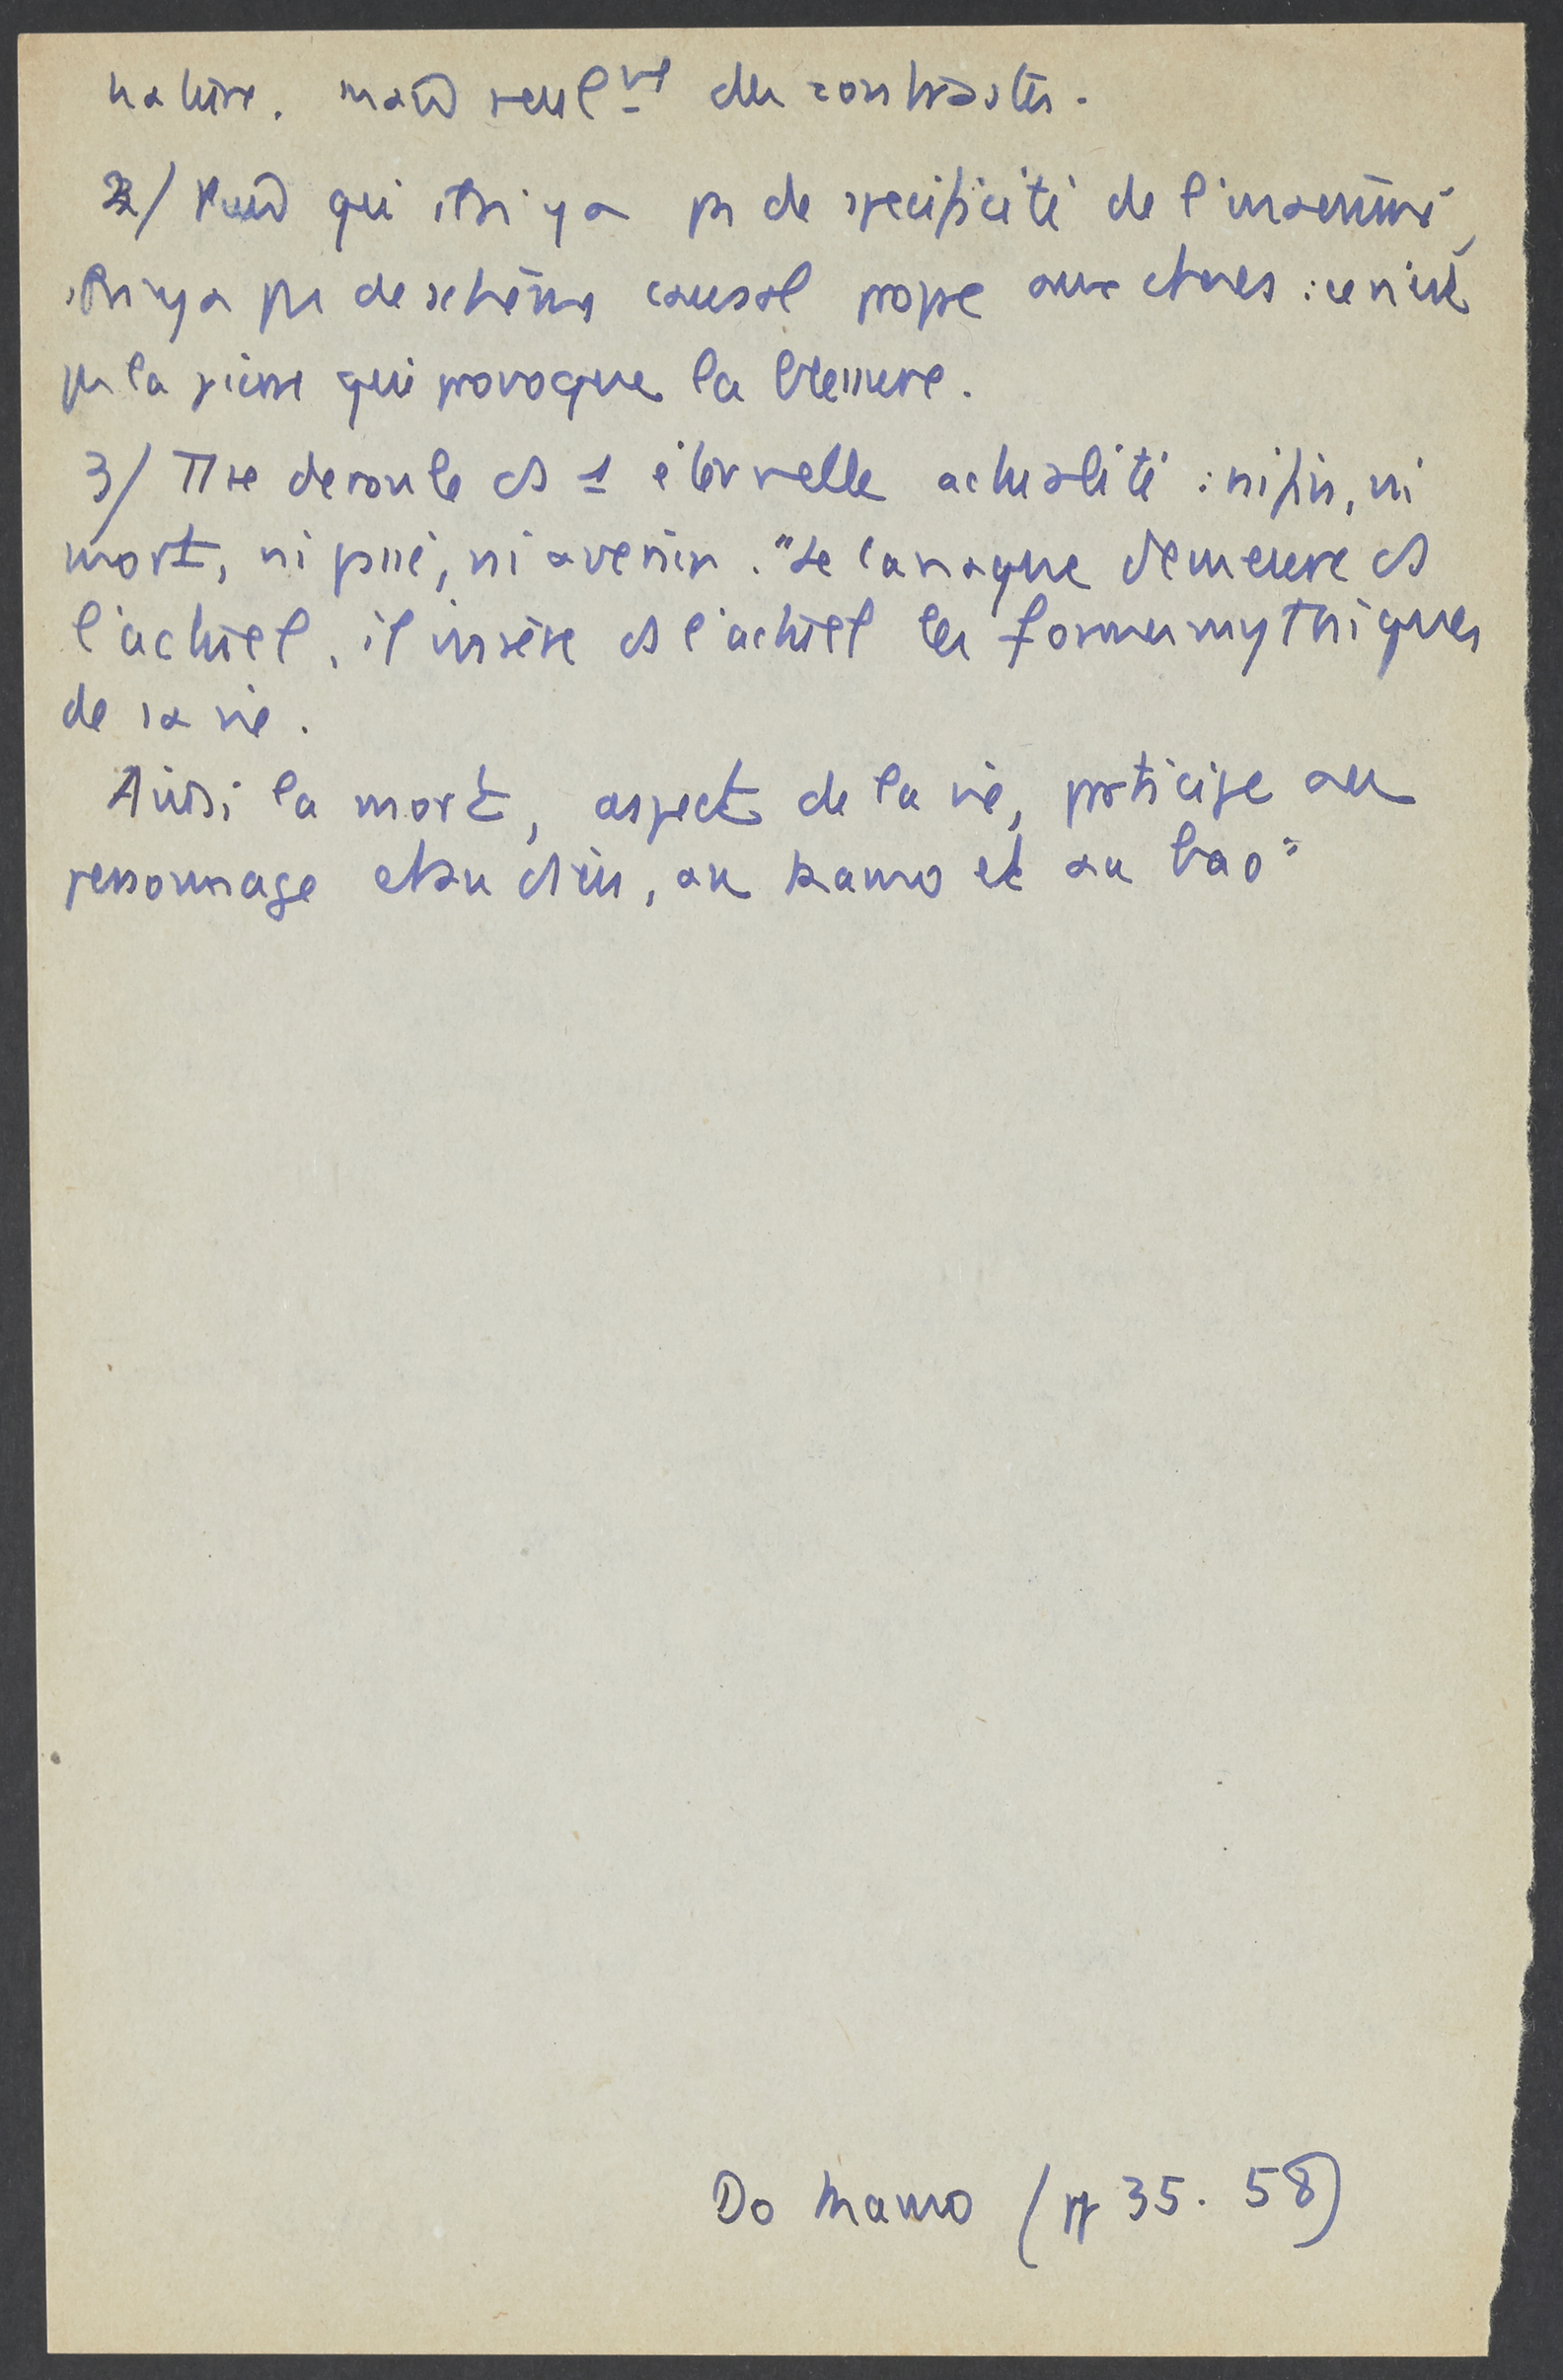 nature. mais seul^nt des contrastes.
2/ Puis qu'il n'y a ps de specificité de l'inanimé,
il n'y a ps de schème causal propre aux choses : ce n'est
ps la pierre qui provoque la blessure.
3/ Tt se deroule ds 1 éternelle actualité : ni fin, ni
mort, ni passé, ni avenir. "Le Canaque demeure ds
l'actuel, il insère ds l'actuel les formes mythiques
de sa vie.
Ainsi la mort, aspect de la vie, participe au
personnage et au dieu, au kamo et au bao"
Do Kamo (pp 35. 58)